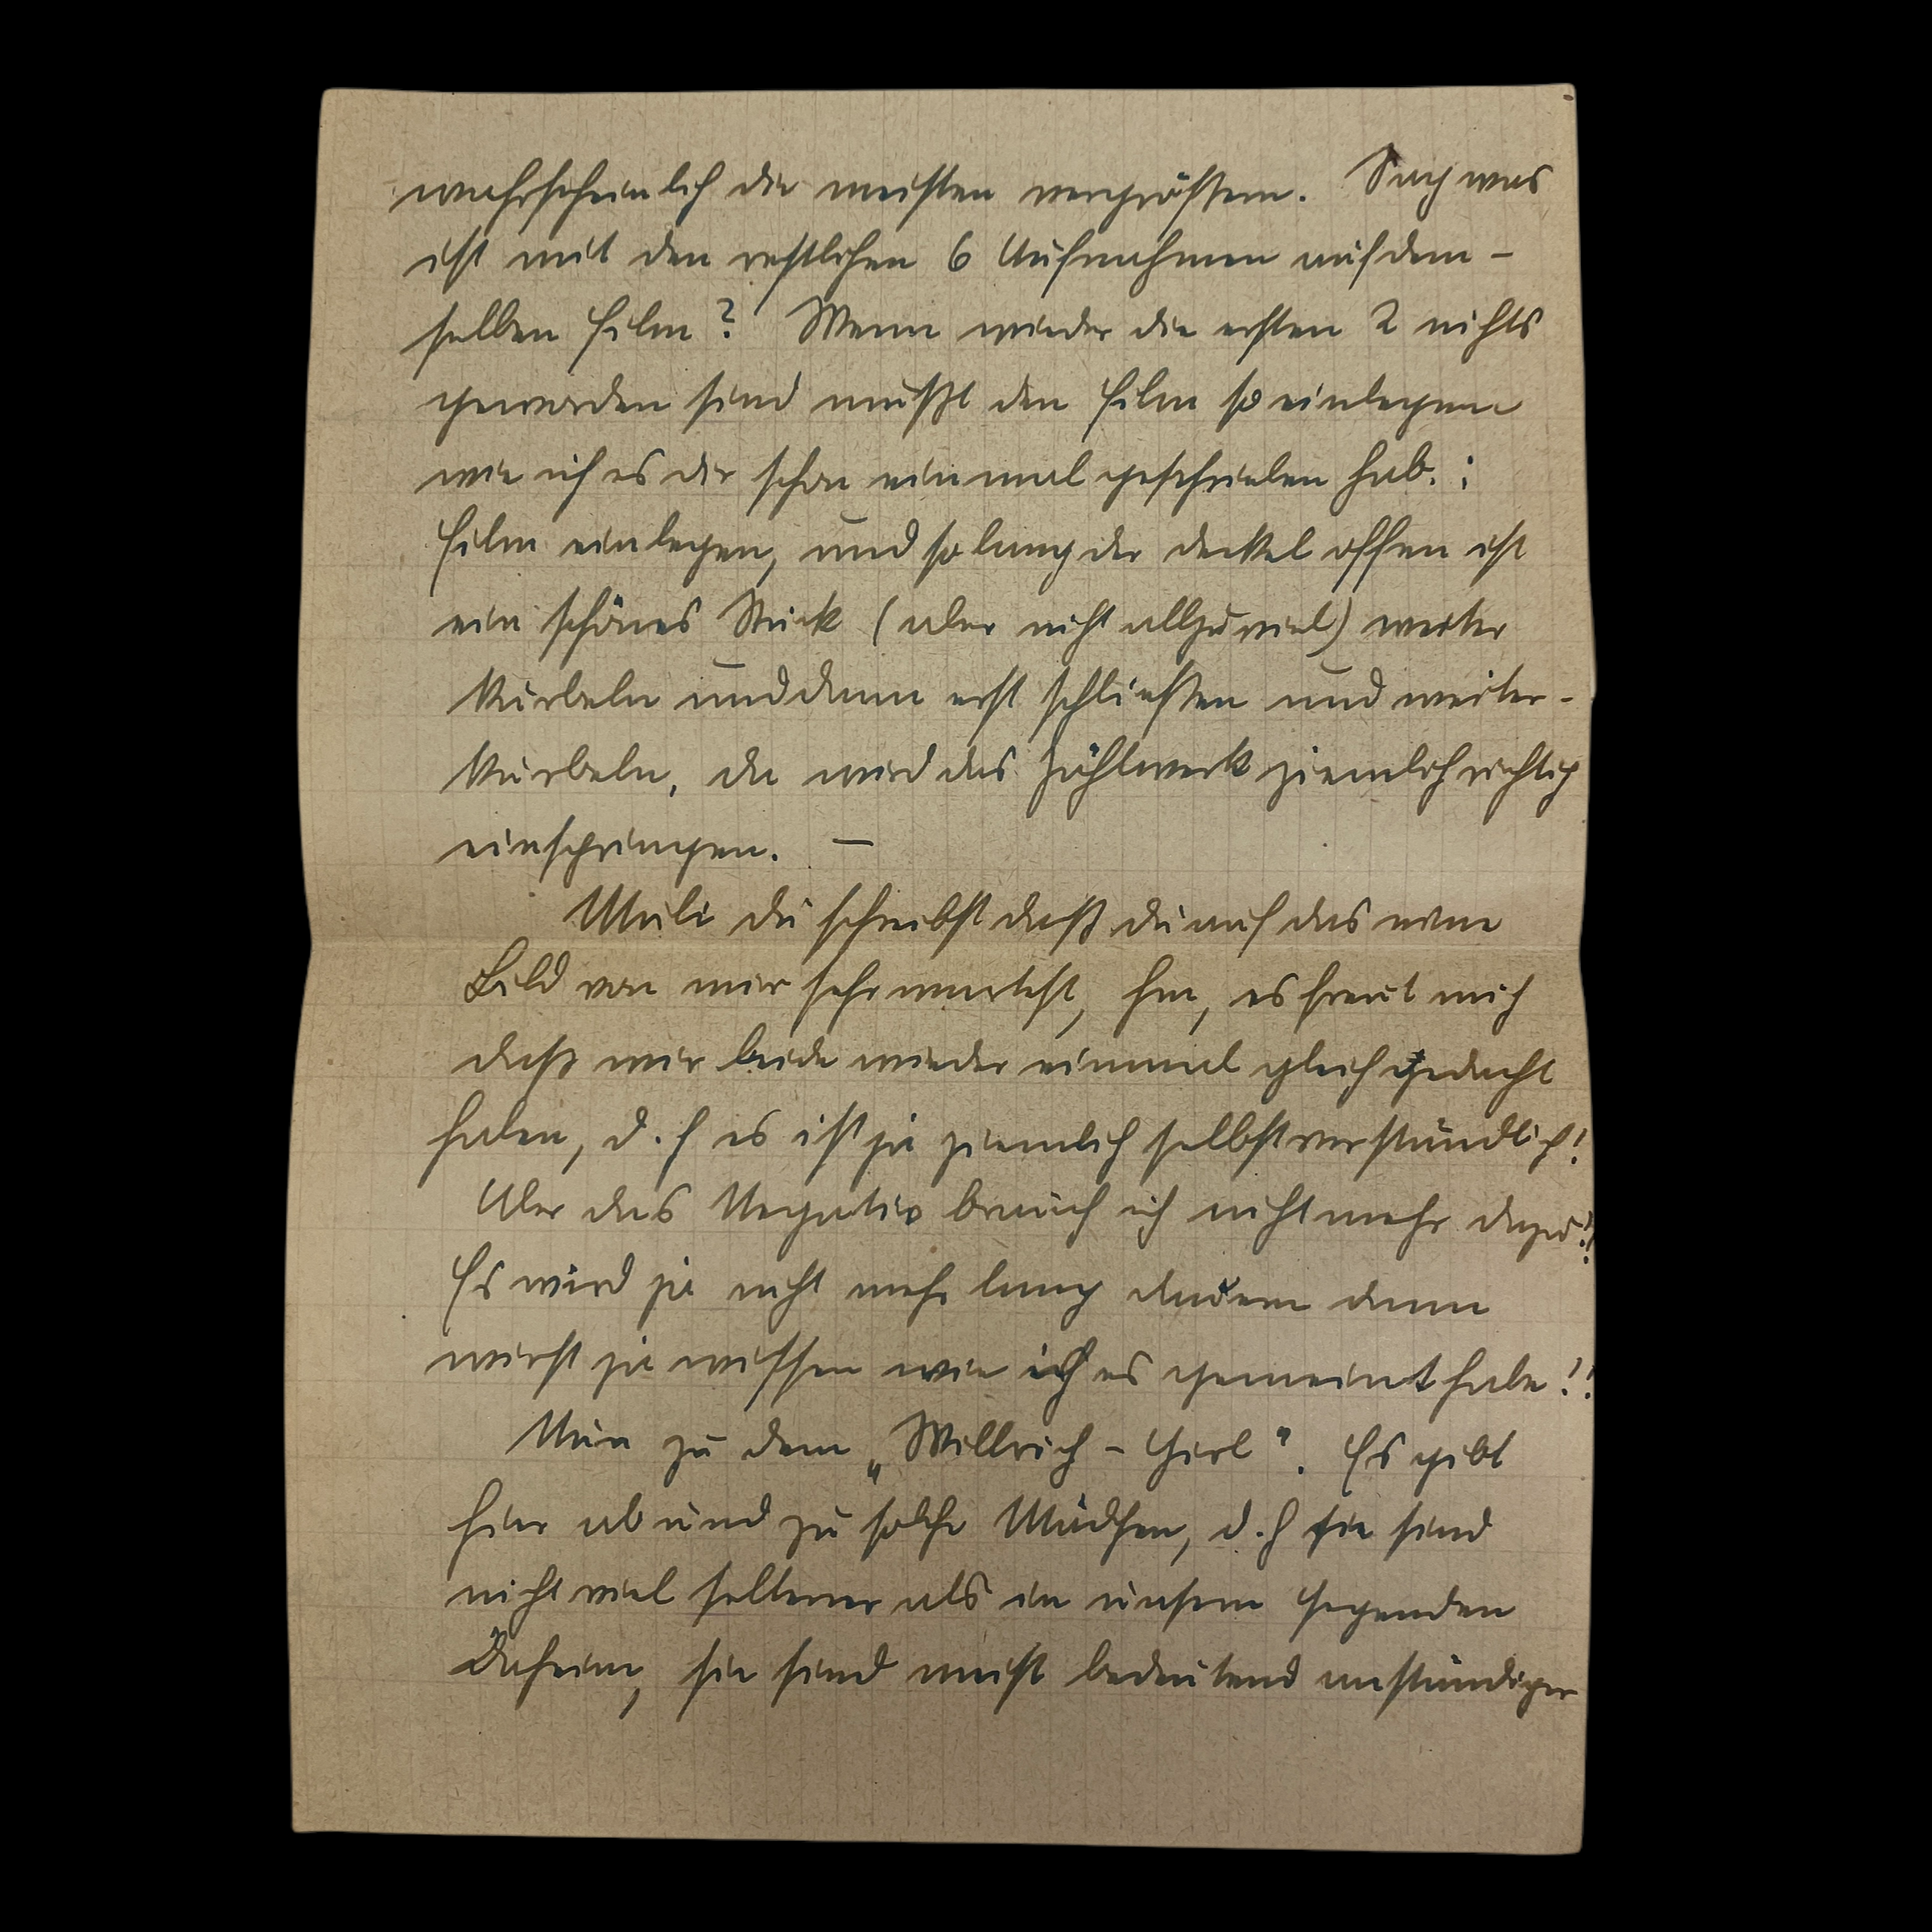 wahrscheinlich die meisten vergrößern. Sag was
ist mit den restlichen 6 Aufnahmen auf dem-
selben Film? Wenn wieder die ersten 2 nichts
geworden sind mußt den Film so einlegen
wie ich es dir schon einmal geschrieben hab.:
Film einlegen, und so lang der deckel offen ist
ein schönes Stück (aber nicht allzuviel) weiter
kurbeln und dann erst schließen und weiter-
kurbeln, da wird das Zählwerk ziemlich richtig
einspringen. —
Muli du schreibst daß du auf das neue
Bild von mir sehr wartest, hm, es freut mich
daß wir beide wieder einmal gleich gedacht
haben, d.h es ist ja ziemlich selbstverständlich!
Aber das Negativ brauch ich nicht mehr dazu!!
Es wird ja nicht mehr lang dauern dann
wirst ja wissen wie ich es gemeint habe!!
Nun zu dem „Willrich-Girl". Es gibt
hier ab und zu solche Mädchen, d.h sie sind
nicht viel seltener als in unsern Gegenden
Daheim, sie sind meist bedeutend anständiger